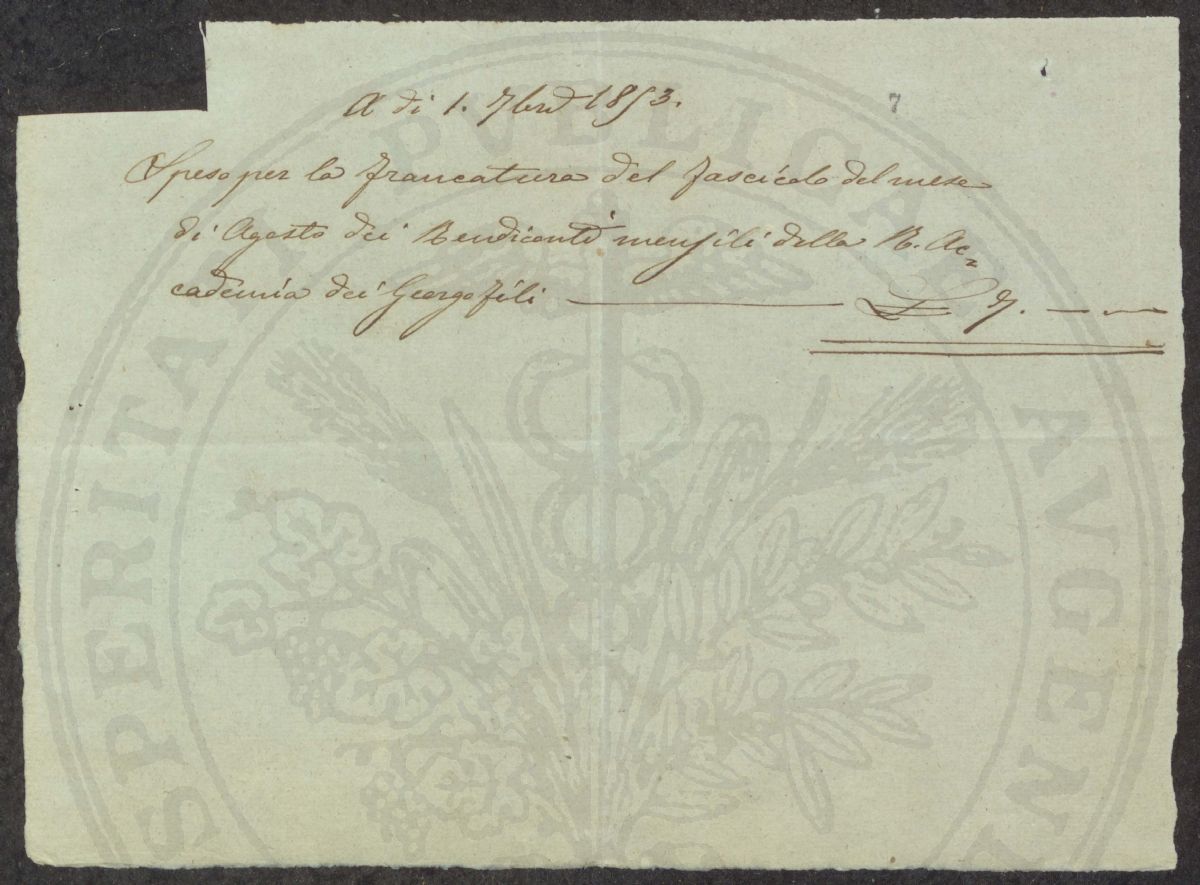 A di 1. 7bre 1853.
7
Spese per la francatura del fascicolo del mese
di Agosto dei Rendiconti mensili della R. Ac=
cademia dei Georgofili ——— £ 7. — —
PROSPERITATI PUBLICAE AUGENDAE